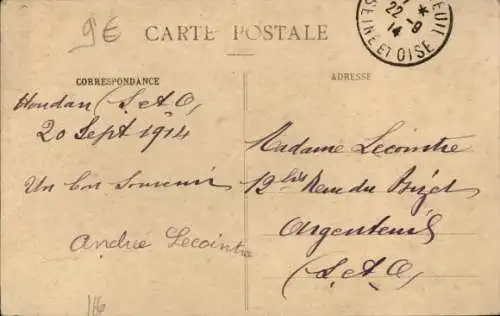 9€
CARTE POSTALE
22-9
14
SEINE ET OISE
CORRESPONDANCE
ADRESSE
Houdan (S. et O.)
20 Sept 1914
Un bon Souvenir
André Lecointre
Madame Lecointre
12 bis Rue du
Argenteuil
(S. et O.)